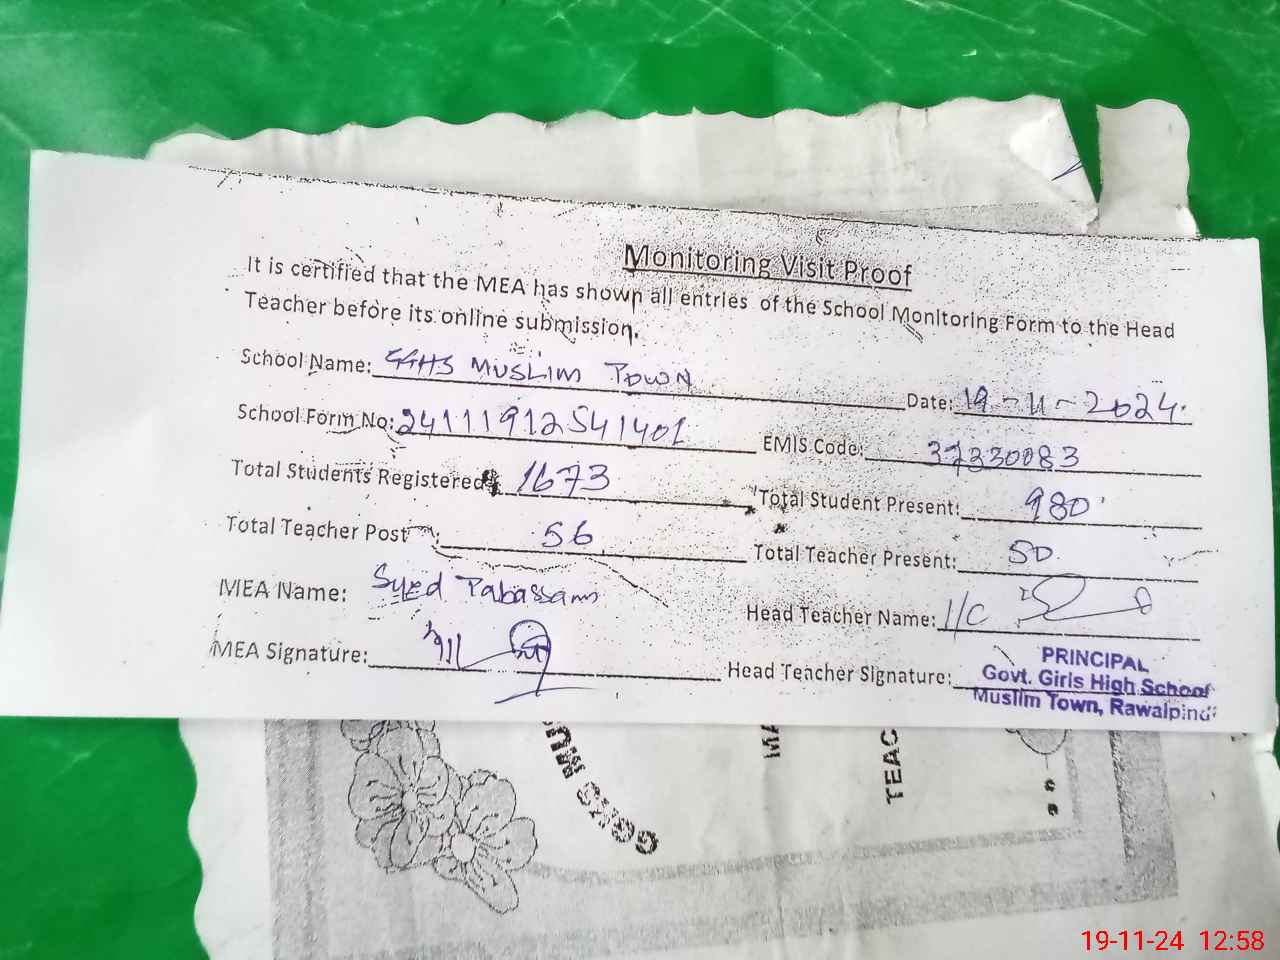 Monitoring Visit Proof
It is certified that the MEA has shown all entries of the School Monitoring Form to the Head
Teacher before its online submission.
School Name: GGHS MUSLIM TOWN
Date: 19-11-2024.
School Form No: 24111912541401
EMIS Code: 37330083
Total Students Registered: 1673
Total Student Present: 980
Total Teacher Post: 56
Total Teacher Present: 50
MEA Name: Syed Tabassam
Head Teacher Name: I/C
MEA Signature:
Head Teacher Signature:
PRINCIPAL
Govt. Girls High School
Muslim Town, Rawalpindi
MA
TEAC
19-11-24 12:58